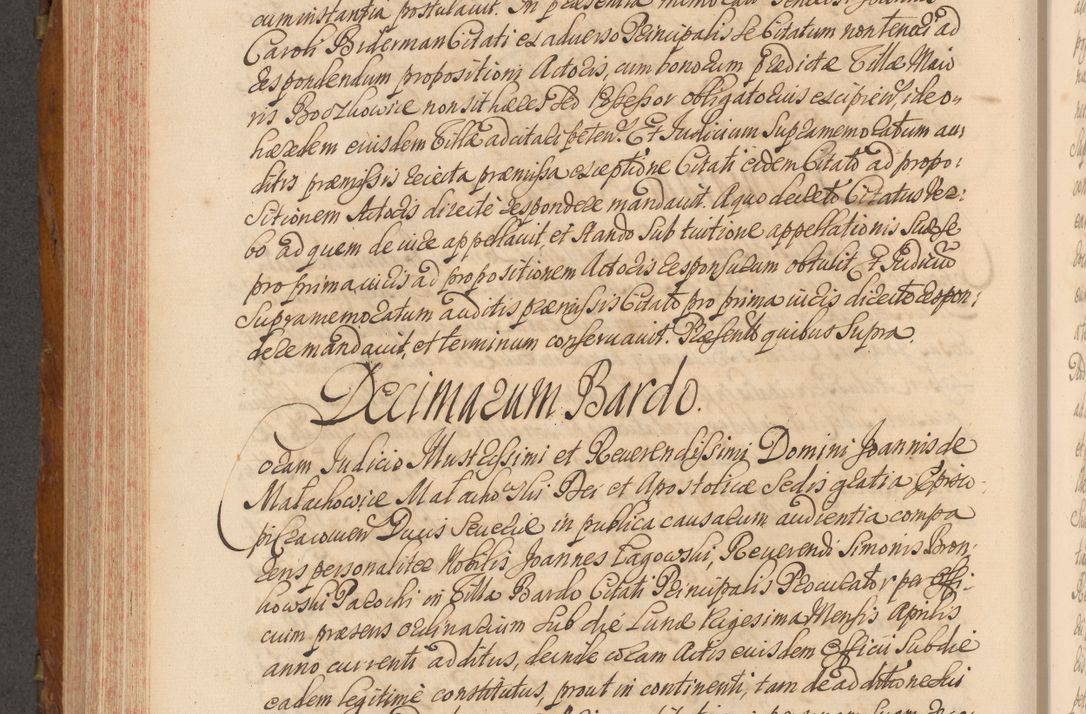 cum instantia postulavit. In praesentia
Caroli Biderman Citati ex adverso Principalis se Citatum non teneri ad
respondendum propositioni Actoris, cum bonorum praedictae Villae Maio
ris Borzkowice non sit haeres sed obligatorius excipien. ideo
haeredem eiusdem Villae adcitari peten. Et Judicium Supramemoratum au
ditis praemissis reiecta praemissa exceptione Citati eidem Citato ad propo:
sitionem Actoris directè respondere mandavit. A quo decreto Citatus Ver:
bo ad quem de iure appellavit, et stando sub tuitione appellationis suae se
pro prima iuris ad propositionem Actoris responsurum obtulit, Et Judiciũ
Supramemoratum auditis praemissis Citato pro prima iuris directe respon:
dere mandavit, et terminum conservavit. Praesentibus quibus supra.
Decimarum Bardo.
Coram Judicio Illustrissimi et Reverendissimi Domini Joannis de
Małachowice Małachowski Dei et Apostolicae Sedis gratia Episco-
pi Cracovien Ducis Severiae in publica causarum audientia compa
rens personaliter Nobilis Joannes Łagowski, Reverendi Simonis Bron:
kowski Parochi in Villa Bardo Citati Principalis Procurator per Offi:
cium praesens ordinarium sub die Lunae Vigesima Mensis Aprilis
anno currenti additus, deinde coram Actis eiusdem Officii sub die
eadem legitimè constitutus, prout in continenti, tam de ad ditione sui